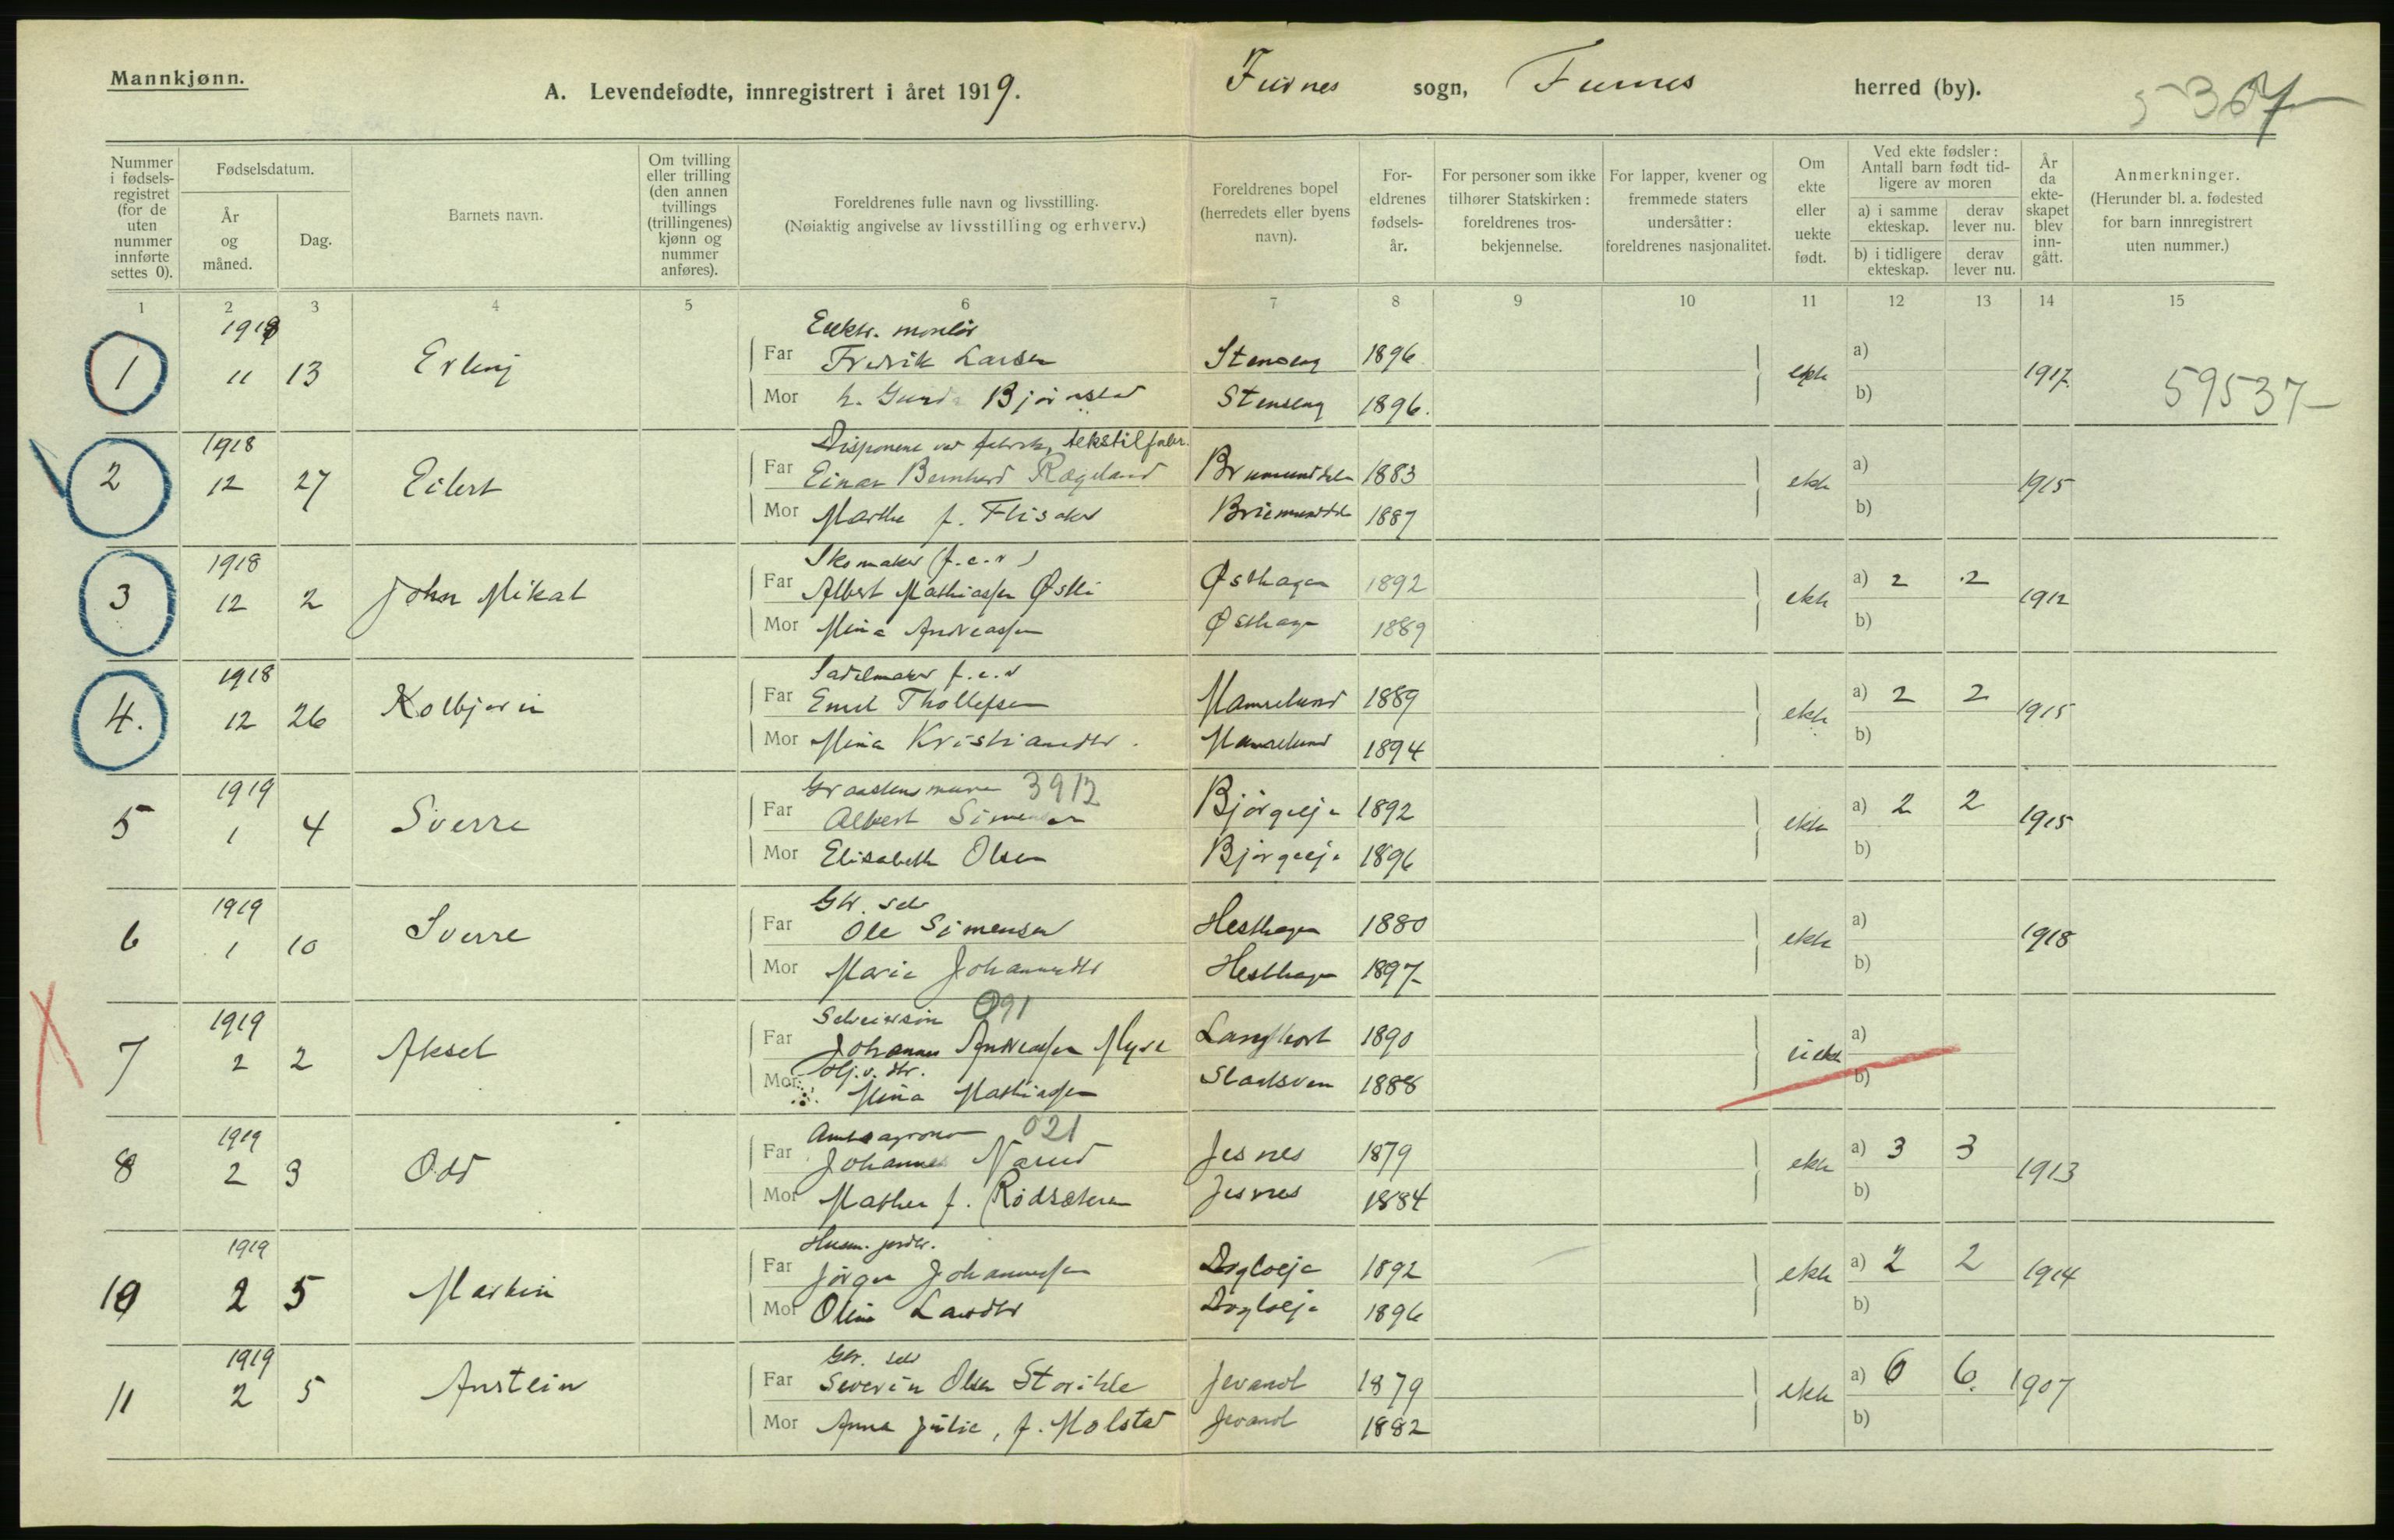 Mannkjønn.
A. Levendefødte, innregistrert i året 1919.
Furnes sogn, Furnes herred (by).
5367
Nummer i fødselsregistret (for de uten nummer innførte settes 0).
Fødselsdatum.
År og måned.
Dag.
Barnets navn.
Om tvilling eller trilling (den annen tvillings (trillingenes) kjønn og nummer anføres).
Foreldrenes fulle navn og livsstilling.
(Nøiaktig angivelse av livsstilling og erhverv.)
Foreldrenes bopel (herredets eller byens navn).
Foreldrenes fødselsår.
For personer som ikke tilhører Statskirken: foreldrenes trosbekjennelse.
For lapper, kvener og fremmede staters undersåtter: foreldrenes nasjonalitet.
Om ekte eller uekte født.
Ved ekte fødsler: Antall barn født tidligere av moren
a) i samme ekteskap.
derav lever nu.
b) i tidligere ekteskap.
derav lever nu.
År da ekteskapet blev inngått.
Anmerkninger.
(Herunder bl. a. fødested for barn innregistrert uten nummer.)
1 2 3 4 5 6 7 8 9 10 11 12 13 14 15
1918
Elektr. montør
1 11 13 Erling Far Fredrik Larsen Stenseng 1896 ekte a) 1917
Mor h. Gunda Bjørnstad Stenseng 1896. b)
59537
1918
Disponent ved fabrik, tekstilfabr.
2 12 27 Eilert Far Einar Bernhard Rægeland Brumunddalen 1883 ekte a) 1915
Mor Marthe f. Flisaker Brumunddal 1887 b)
1918
Skomaker (f.e.r)
3 12 2 John Mikal Far Albert Mathiassen Østli Østhagen 1892 ekte a) 2 2 1912
Mor Mina Andreassen Østhagen 1889 b)
1918
Sadelmaker f.e.r
4. 12 26 Kolbjørn Far Emil Thollefsen Mamrelund 1889 ekte a) 2 2 1915
Mor Mina Kristiansdtr. Mamrelund 1894 b)
1919
Graastensmurer 3912
5 1 4 Sverre Far Albert Simensen Bjørgeeje 1892 ekte a) 2 2 1915
Mor Elisabeth Olsen Bjørgeeje 1896 b)
1919
Gbr. selv
6 1 10 Sverre Far Ole Simensen Hesthagen 1880 ekte a) 1918
Mor Marie Johannesdtr Hesthagen 1897 b)
1919
Selveiersøn 091
7 2 2 Aksel Far Johannes Andreassen Myre 1890 uekte a)
Mor Hj.v. dtr. Mina Mathiassen 1888 b)
1919
Amtsagronom 021
8 2 3 Odd Far Johannes Narud Jesnes 1879 ekte a) 3 3 1913
Mor Mathea f. Rødsæteren Jesnes 1884 b)
1919
Husm. jordbr.
10 2 5 Martin Far Jørgen Johannessen Dogloeje 1892 ekte a) 2 2 1914
Mor Oline Larsdtr Dogloeje 1896 b)
1919
Gbr. selv
11 2 5 Anstein Far Severin Olsen Storihle Jevanol 1879 ekte a) 6 6. 1907
Mor Anna Julie, f. Molstad Jevanol 1882 b)